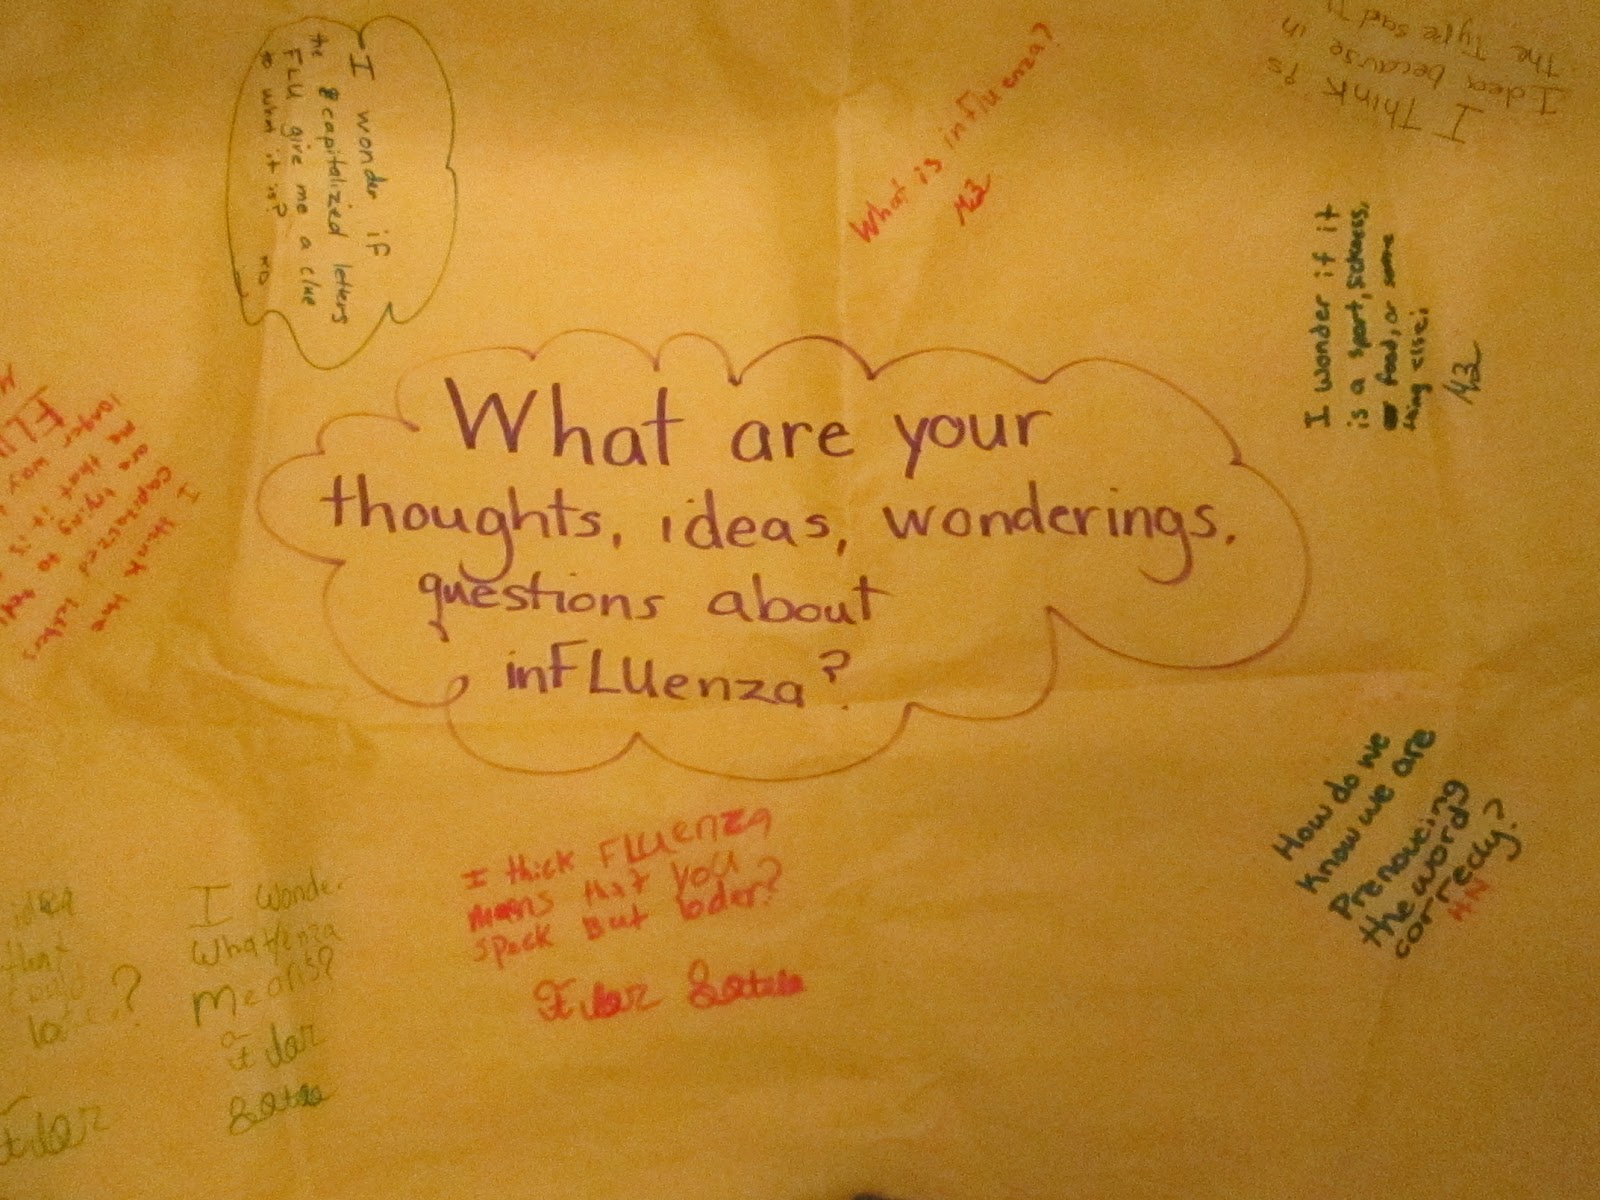 What are your
thoughts, ideas, wonderings,
questions about
inFLUenza?
I wonder if
the capitalized letters
FLU give me a clue
to what it is? KD
What is influenza?
M2
I Think is
Idea because in
The Type sad
I wonder if it
is a sport, sickness,
or food, or some
thing else;
M2
I think the
capitalized letters
me are trying to
longer that it is
FLU way
How do we
Know we are
Prenoucing
the word
correctly?
H.N
I thick FLUenza
means that you
speck But loder?
I wonder
What/enza
Means?
idea
that
could